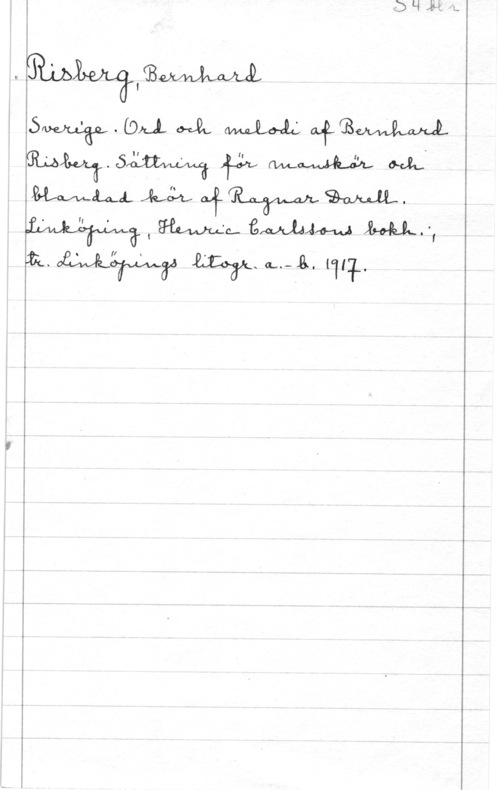 S4 bl r
Risberg, Bernhard
Sverige. Ord och melodi af Bernhard
Risberg. Sättning för manskör och
blandad kör af Ragnar Darell.
Linköping, Henric Carlssons bokh.;
tr. Linköpings litogr. a.-b. 1917.